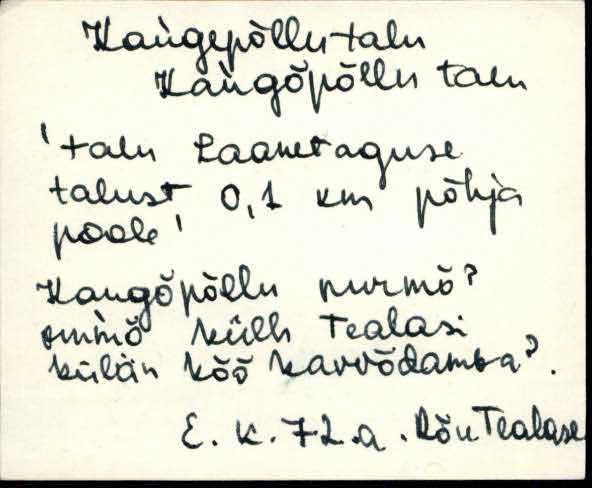 Kaùgepõllu talu
Kaùgõpõllu talu
'talu Laanetaguse
talust 0,1 km põhja
poole'
Kaugõpõllu nurmõ?
ommõ külh Tealasi
külän kõõ kavvõdamba?.
E. K. 72.a. Rõu Tealase